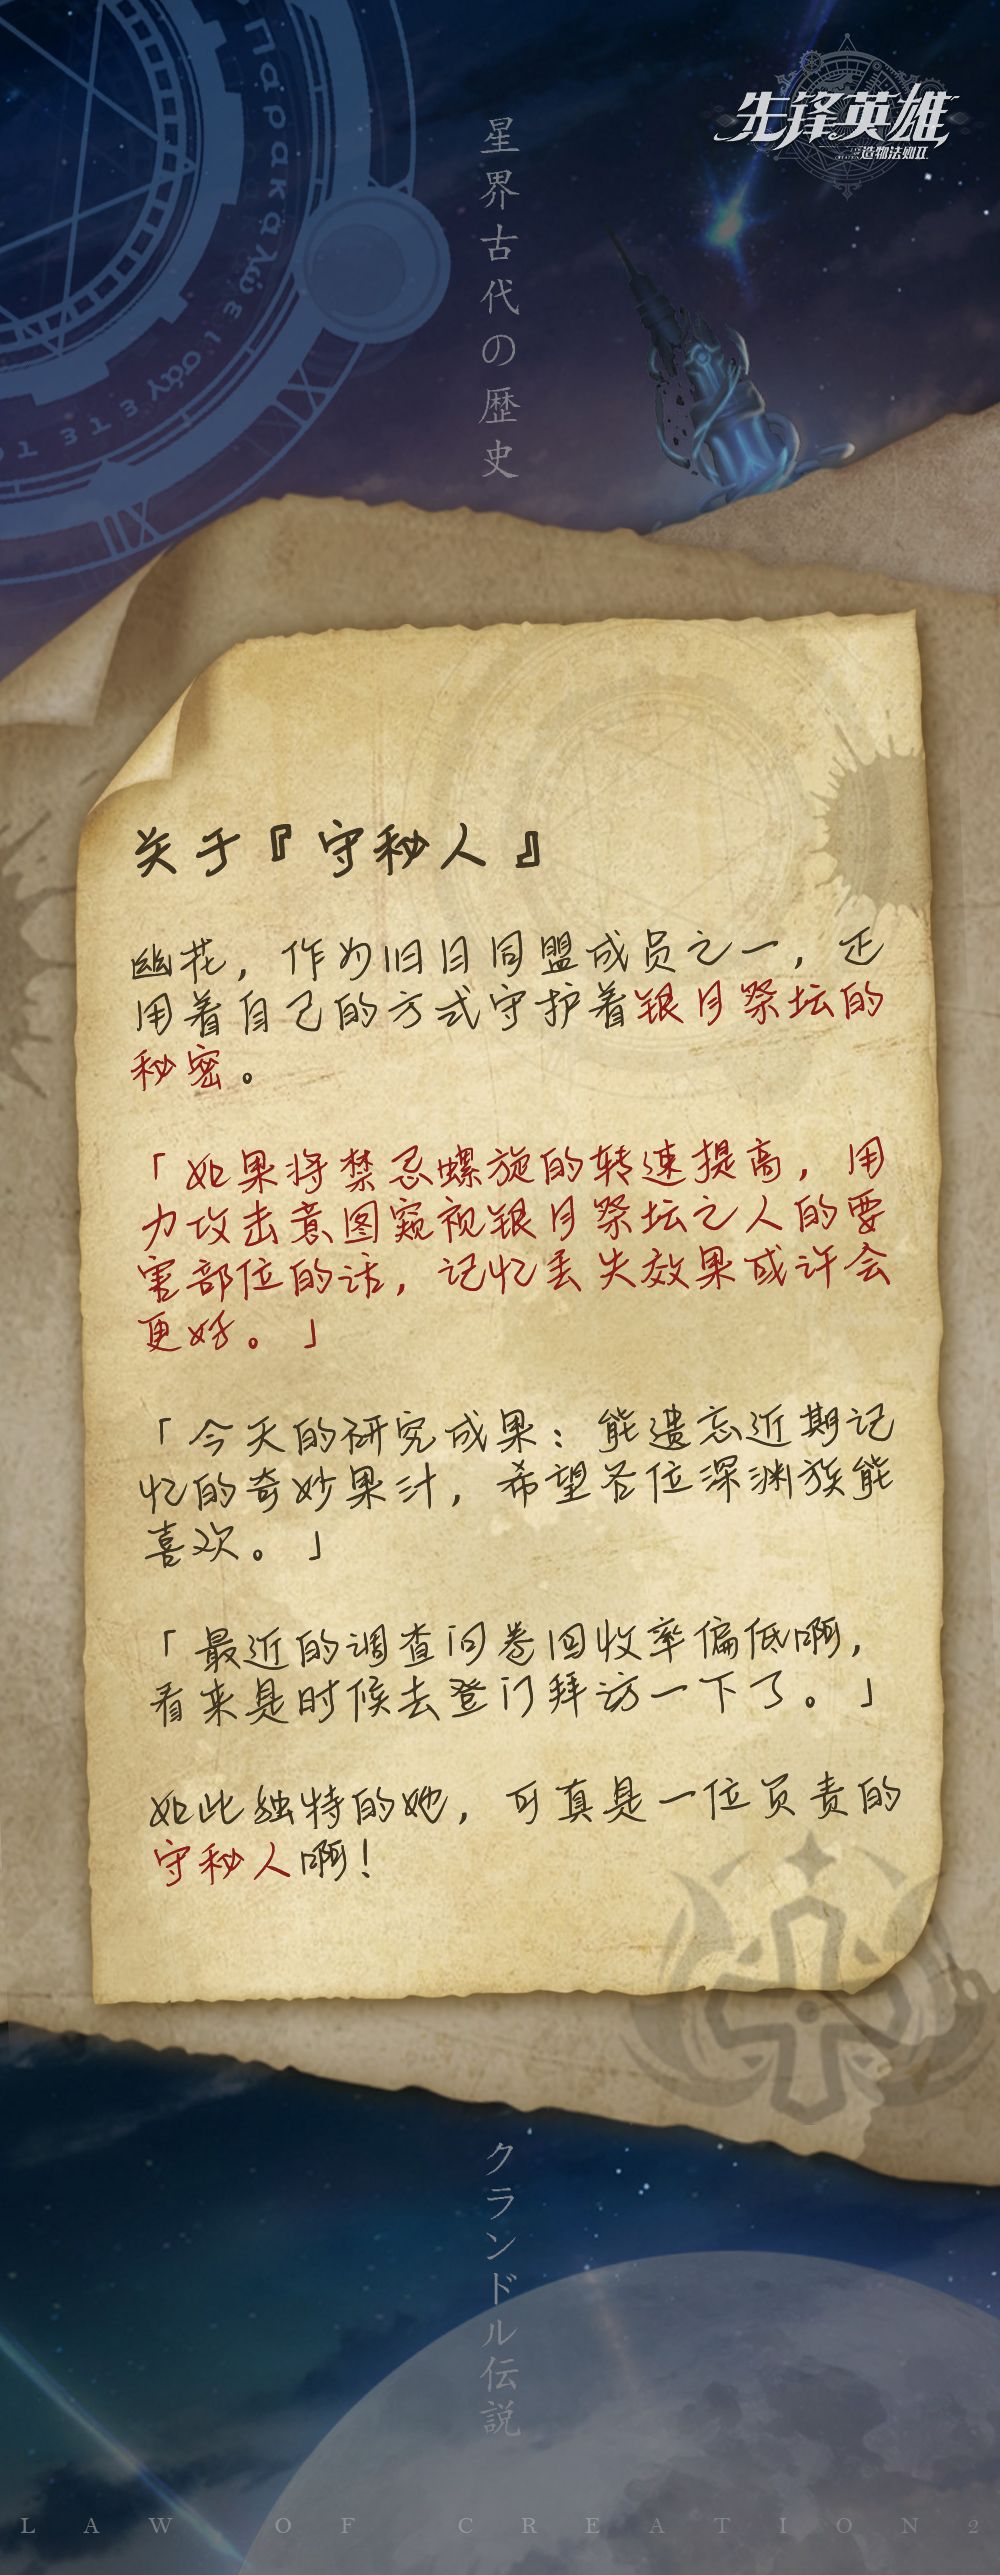 先锋英雄
造物法则II
星界古代の歴史
关于『守秘人』
幽花，作为旧日同盟成员之一，正
用着自己的方式守护着银月祭坛的
秘密。
「如果将禁忌螺旋的转速提高，用
力攻击意图窥视银月祭坛之人的要
害部位的话，记忆丢失效果或许会
更好。」
「今天的研究成果：能遗忘近期记
忆的奇妙果汁，希望各位深渊族能
喜欢。」
「最近的调查问卷回收率偏低啊，
看来是时候去登门拜访一下了。」
如此独特的她，可真是一位负责的
守秘人啊！
クランドル伝説
LAW OF CREATION2